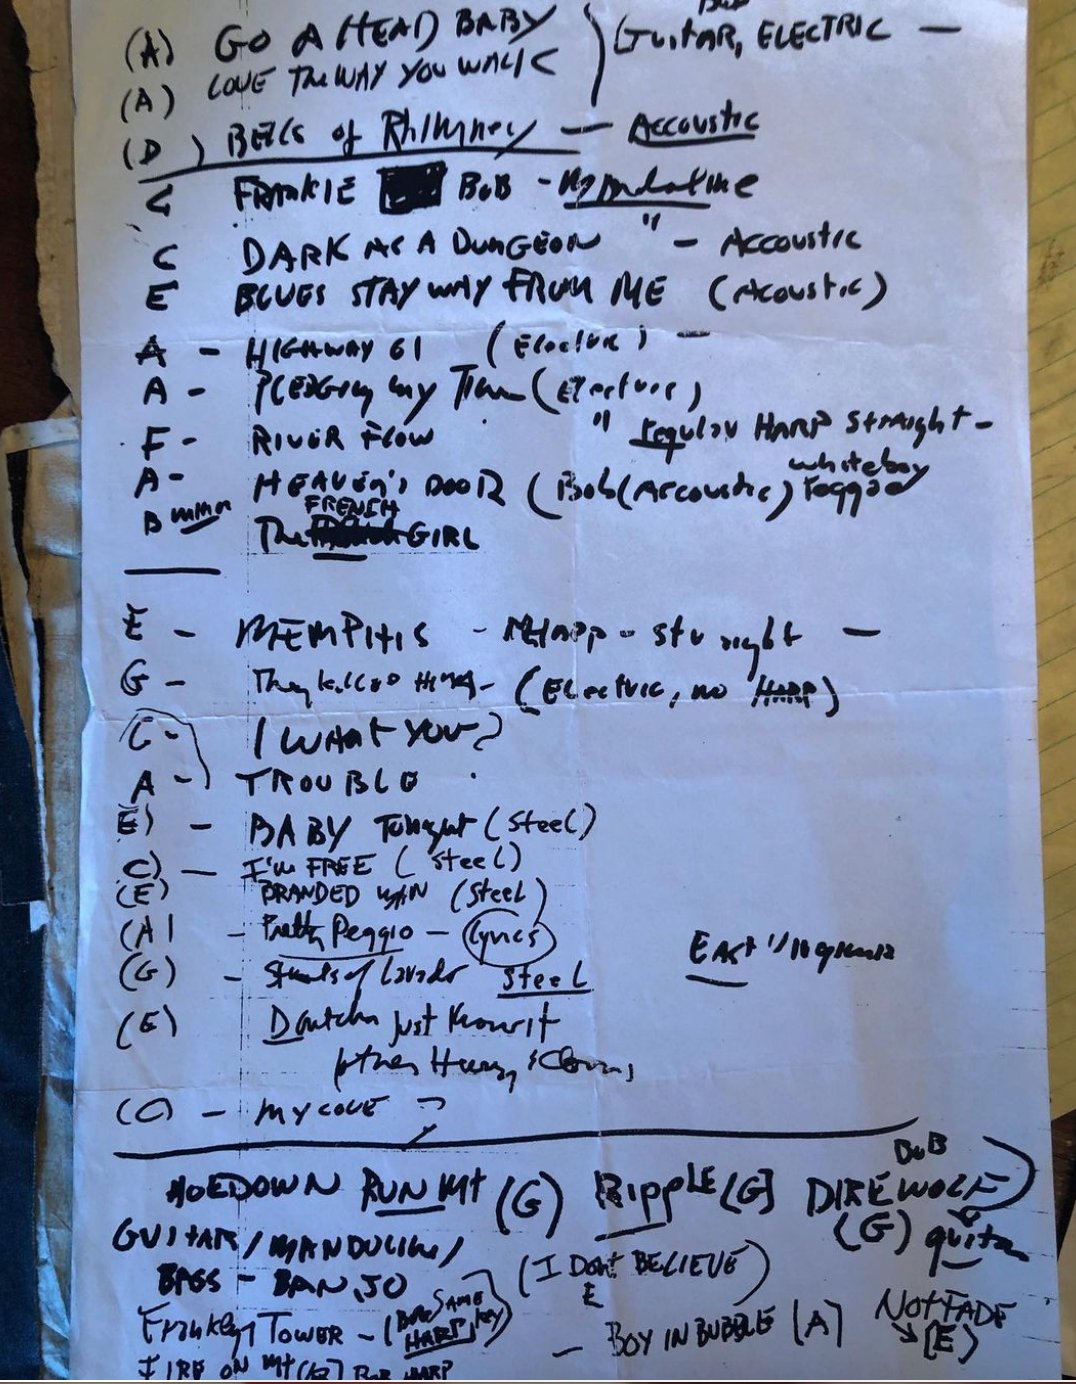 Bob
(A) GO A HEAD BABY ) GUITAR, ELECTRIC —
(A) LOVE THE WAY YOU WALK
(D) BELLS of Rhimney — ACCOUSTIC
G FRANKIE BOB - no mandoline
C DARK AS A DUNGEON " - ACCOUSTIC
E BLUES STAY WAY FROM ME (Acoustic)
A - HIGHWAY 61 (Electric) —
A - PLEDGing my Time (Electric)
F - RIVER FLOW " regular HARP straight -
A - HEAVEN'S DOOR (Bob (Accoustic) whiteboy reggae
B minor The FRENCH GIRL
E - MEMPHIS - HARP - straight —
G - They killed Him - (Electric, no HARP)
C - / WHAT YOU?
A - TROUBLE
E) - BABY Tonight (Steel)
C) — I'm FREE (Steel)
(E) BRANDED MAN (Steel)
(A) - Pretty Peggio - (Lyrics)
(G) - of Steel
East Virginia
(E) just Know it
(C) - MY LOVE ?
HOEDOWN RUN Mt (G) RippLE (G) DIREWOLF) BOB
GUITAR/MANDOLIN/ (G) guitar
BASS - BANJO (I Dont BELIEVE) E
Franklyn TOWER - (BOB SAME HARP, KEY) — BOY IN BUBBLE (A) NOT FADE (E)
FIRE ON Mt BOB HARP